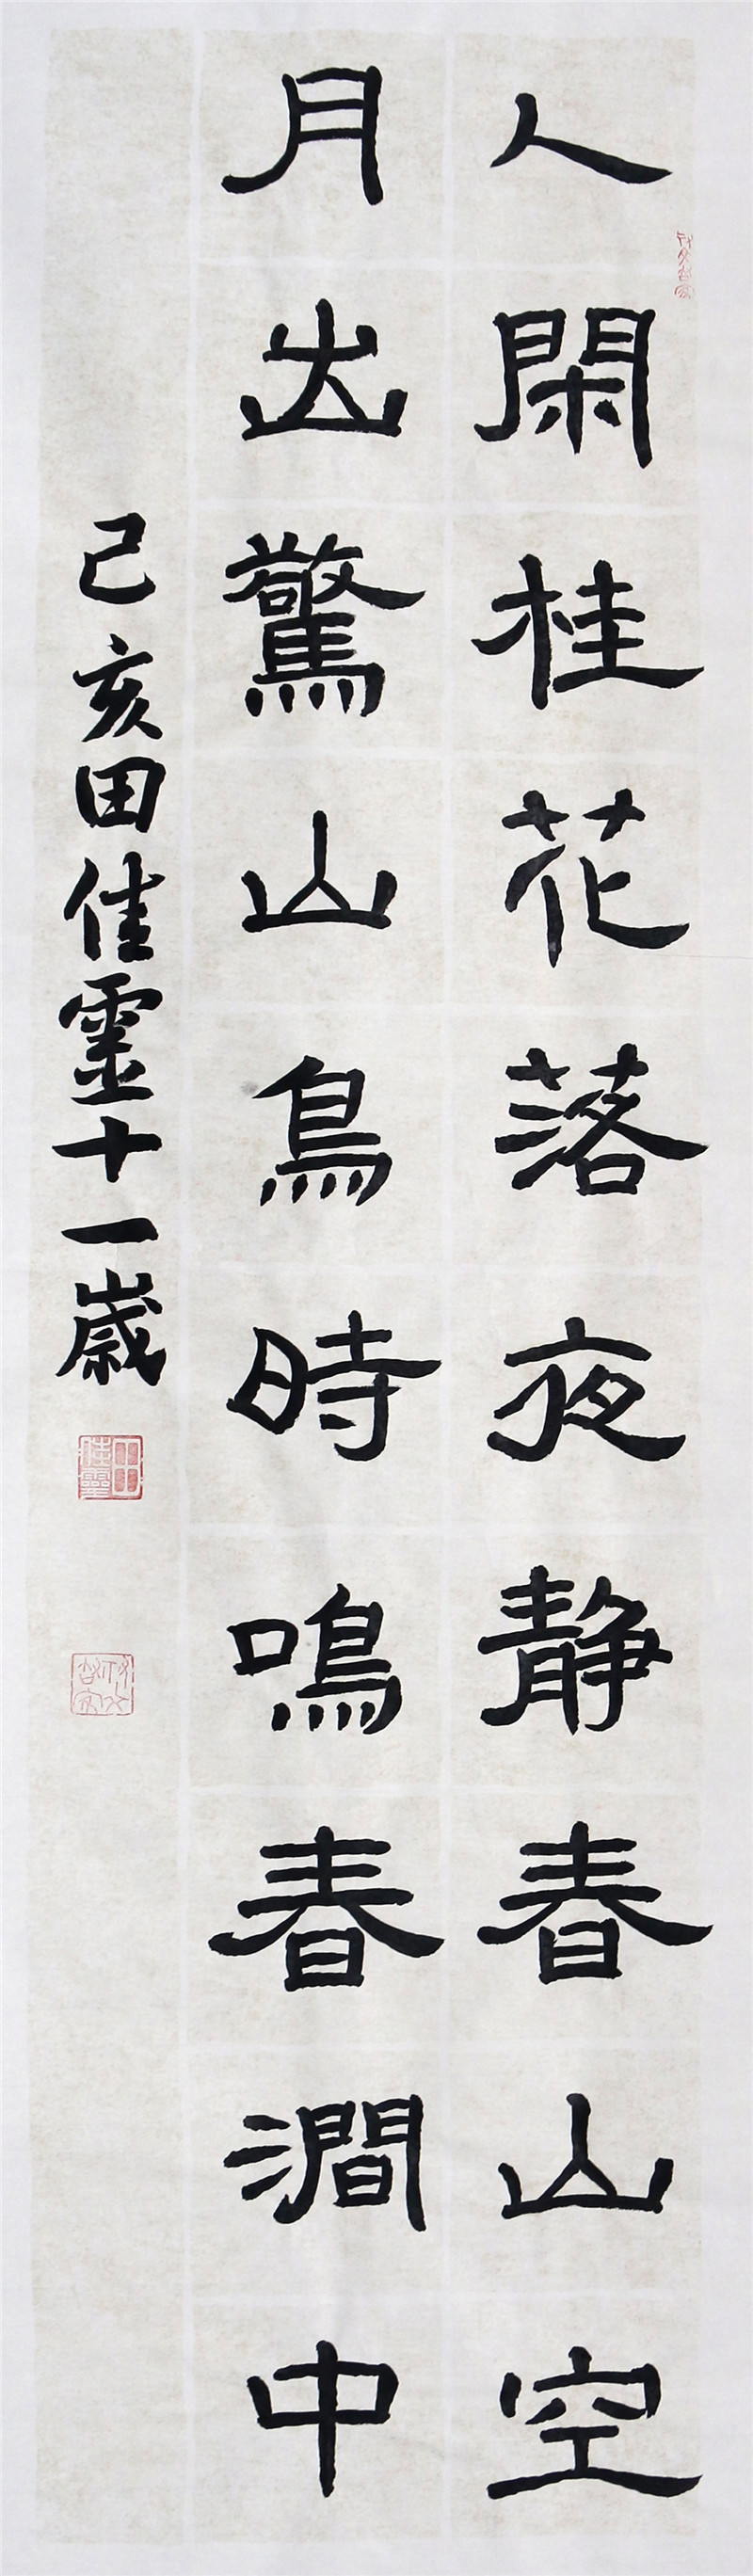 人閑桂花落夜静春山空
月出驚山鳥時鳴春澗中
己亥田佳靈十一歲
田佳靈